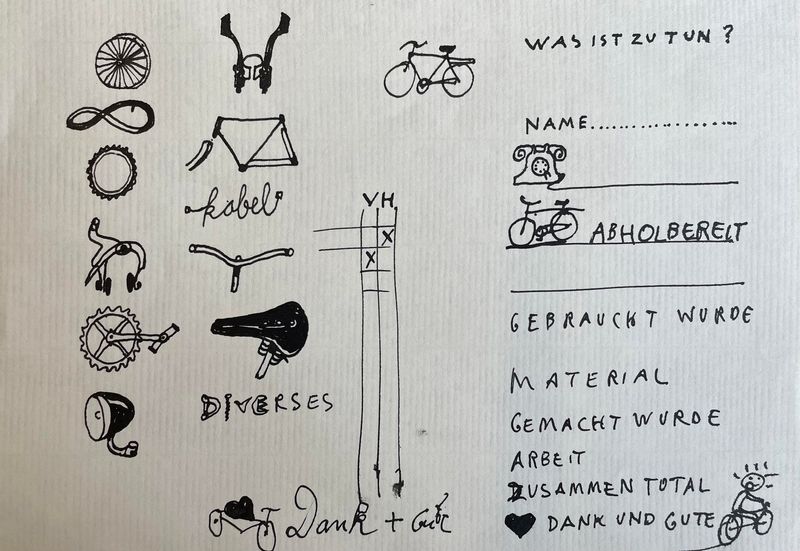 WAS IST ZU TUN?
NAME...................
kabel
V H
X
X
ABHOLBEREIT
GEBRAUCHT WURDE
MATERIAL
GEMACHT WURDE
DIVERSES
ARBEIT
ZUSAMMEN TOTAL
Dank +
♥ DANK UND GUTE